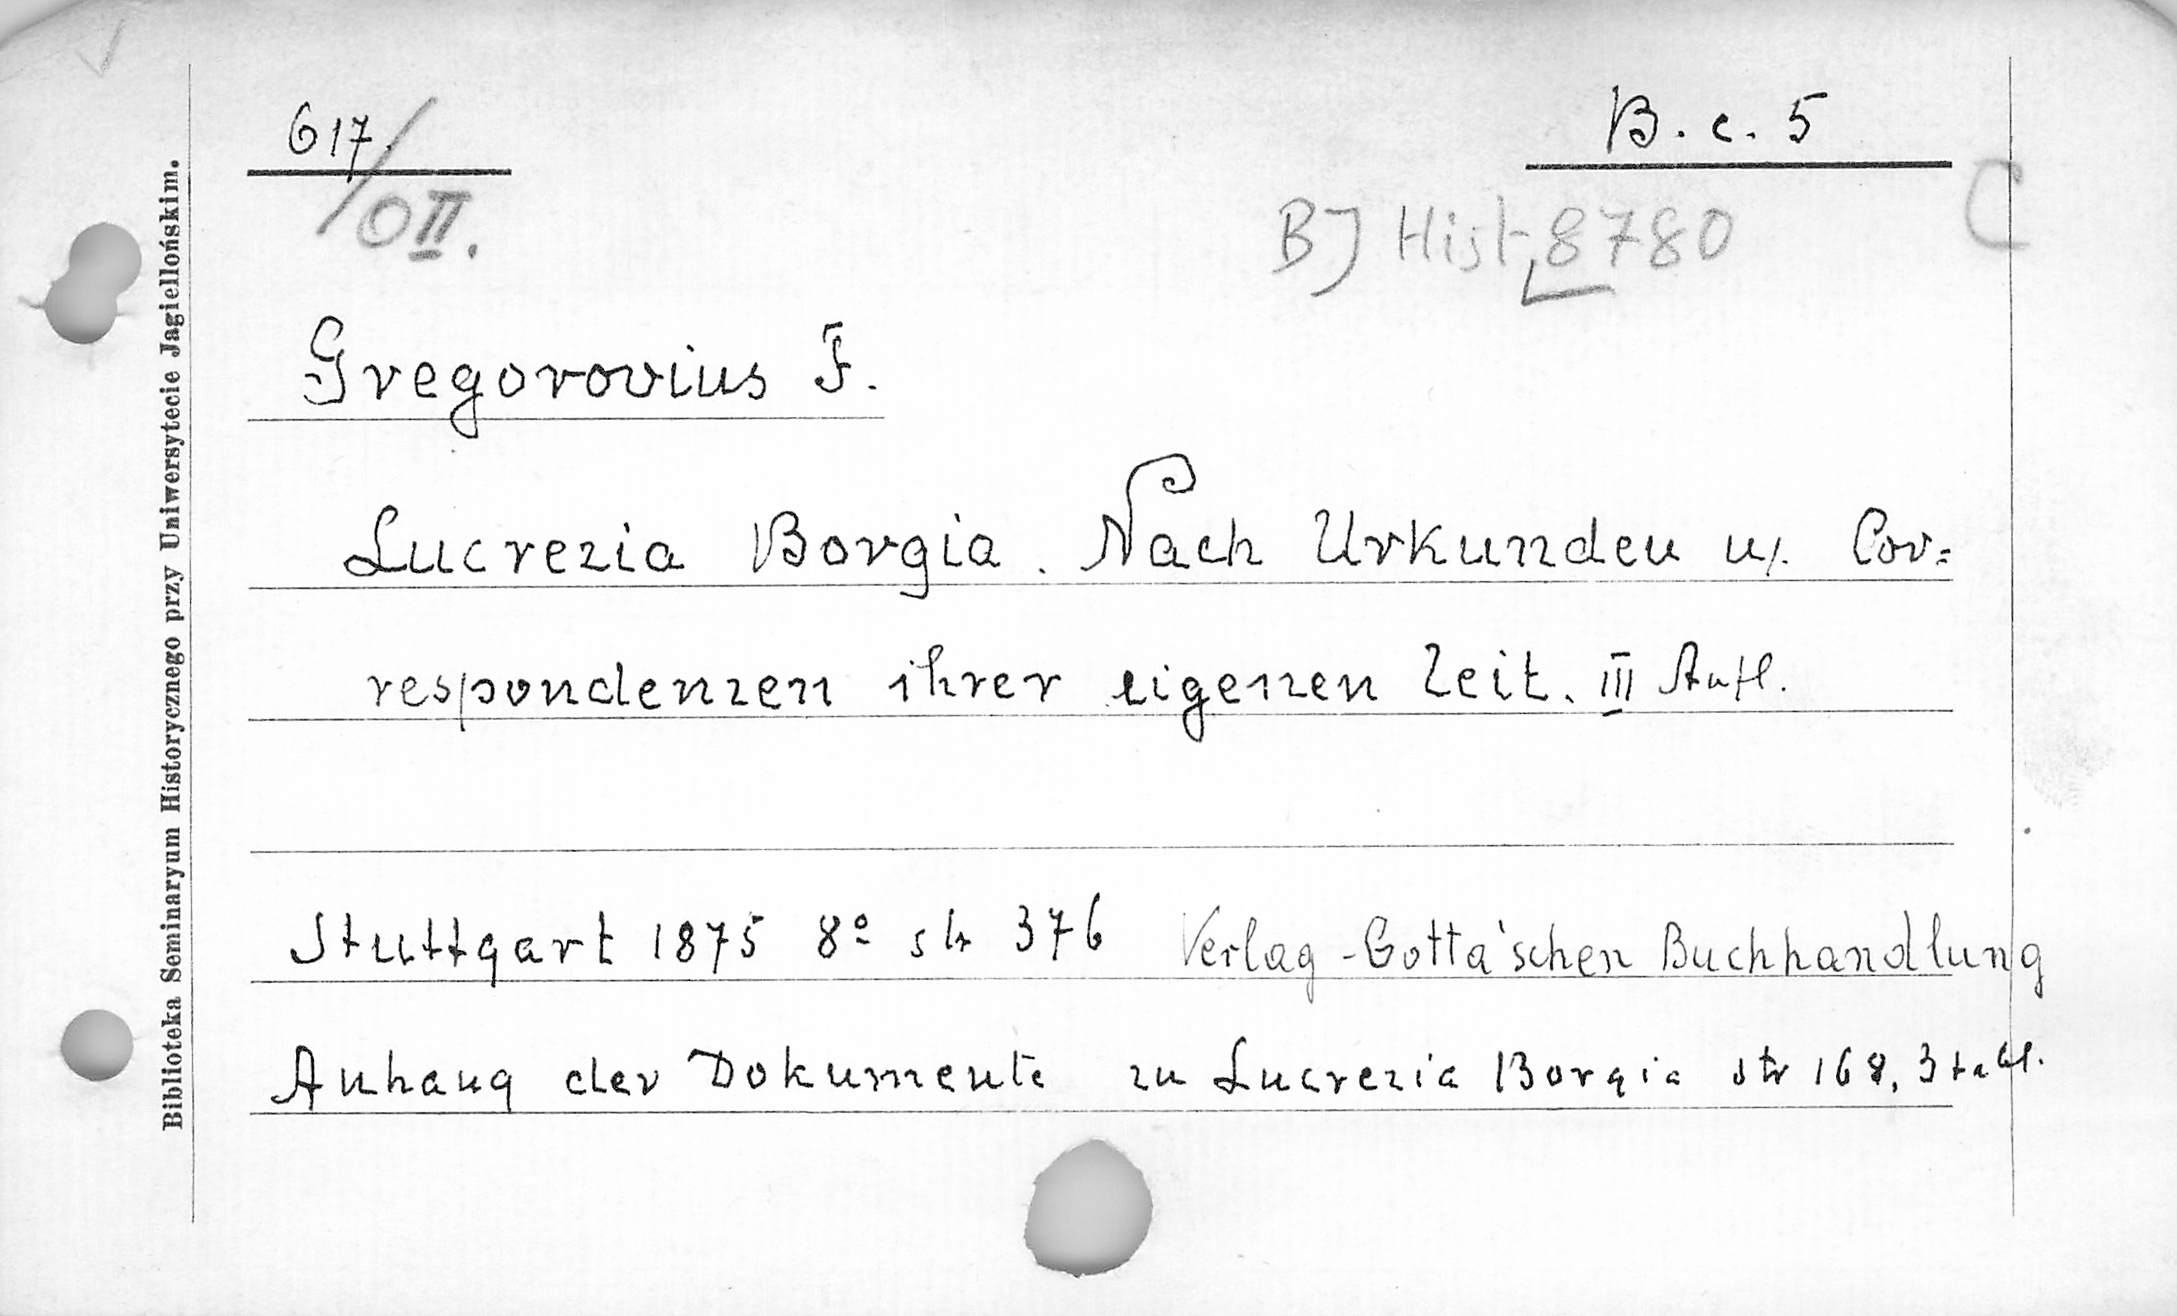 617./ B. c. 5
OII. BJ Hist. 8780 C
Gregorovius F.
Lucrezia Borgia. Nach Urkunden u. Cor=
respondenzen ihrer eigenen Zeit. III Aufl.
Stuttgart 1875 8º str 376 Verlag - Cotta'schen Buchhandlung
Anhang der Dokumente zu Lucrezia Borgia str 168, 3 tabl.
Biblioteka Seminaryum Historycznego przy Uniwersytecie Jagiellońskim.